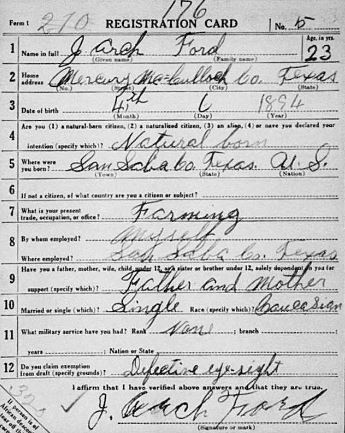 Form 1 210 176 REGISTRATION CARD No. 5
1 Name in full J. Arch Ford Age, in yrs. 23
(Given name) (Family name)
2 Home address Mercury McCulloch Co. Texas
(No.) (Street) (City) (State)
3 Date of birth 4th 6 1894
(Month) (Day) (Year)
4 Are you (1) a natural-born citizen, (2) a naturalized citizen, (3) an alien, (4) or have you declared your
intention (specify which)? Natural born
5 Where were you born? San Saba Co. Texas. U. S.
(Town) (State) (Nation)
6 If not a citizen, of what country are you a citizen or subject?
7 What is your present trade, occupation, or office? Farming
8 By whom employed? Myself
Where employed? San Saba Co. Texas
9 Have you a father, mother, wife, child under 12, or a sister or brother under 12, solely dependent on you for
support (specify which)? Father and Mother
10 Married or single (which)? Single Race (specify which)? Caucasian
11 What military service have you had? Rank None ; branch
years ; Nation or State
12 Do you claim exemption from draft (specify grounds)? Defective eye-sight
I affirm that I have verified above answers and that they are true.
J. Arch Ford
(Signature or mark)
If person is
of African